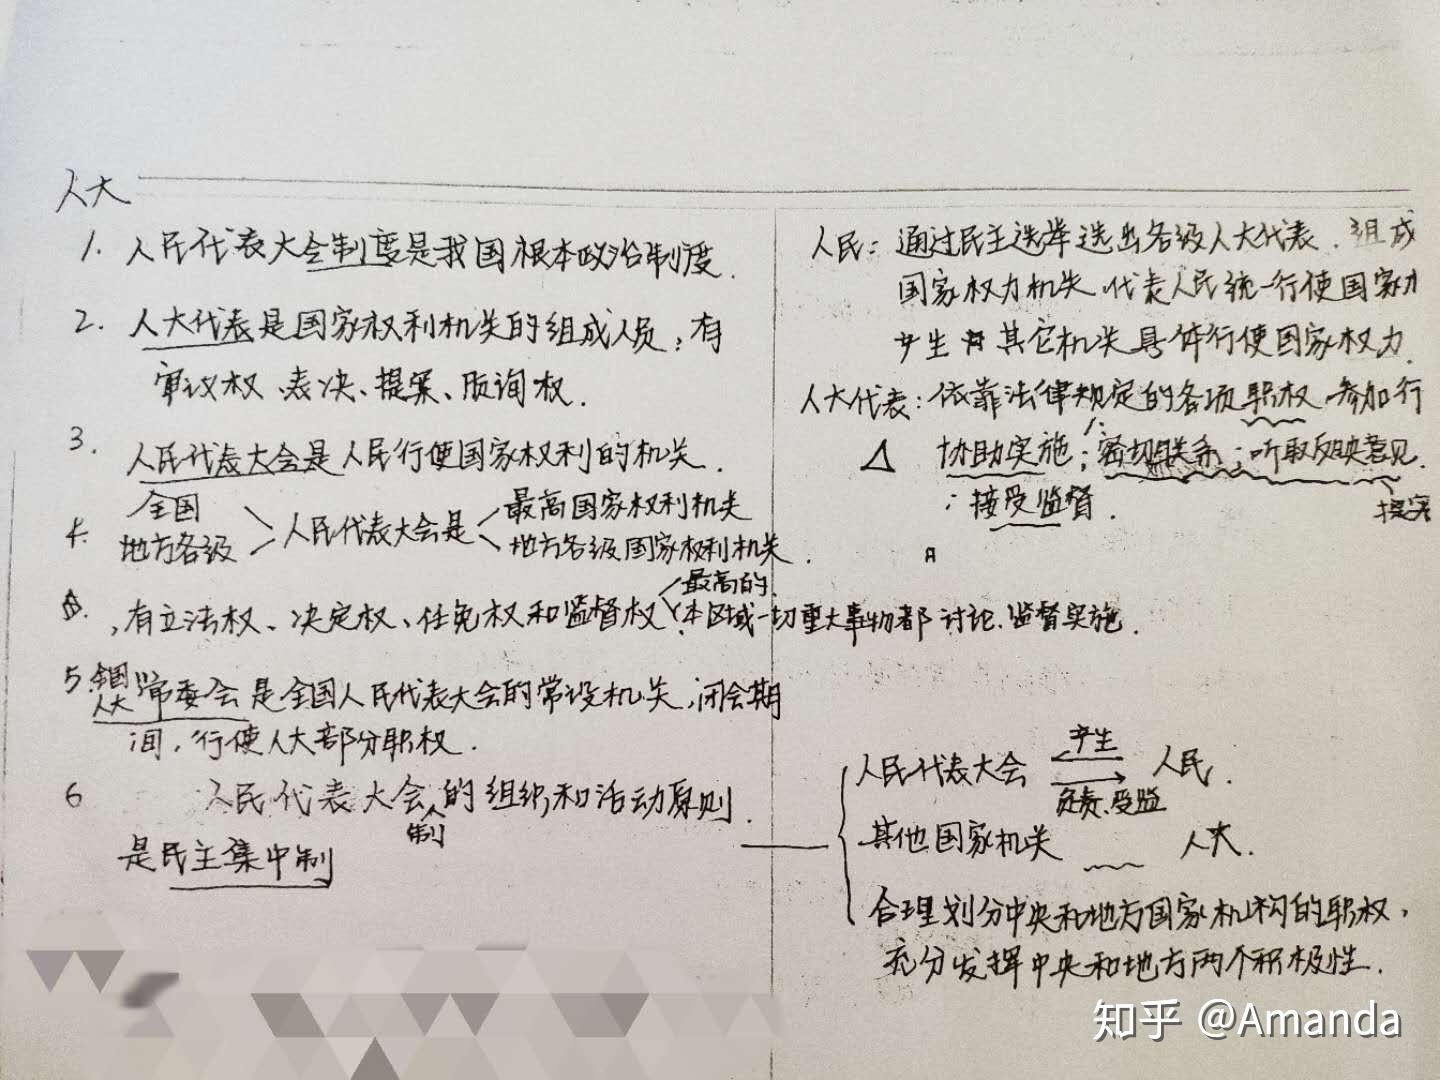 人大
1. 人民代表大会制度是我国根本政治制度.
2. 人大代表是国家权利机关的组成人员,有
审议权、表决、提案、质询权.
3. 人民代表大会是人民行使国家权利的机关.
全国
4. 地方各级 人民代表大会是 最高国家权利机关
地方各级国家权利机关.
,有立法权、决定权、任免权和监督权 最高的
本区域一切重大事物都讨论、监督实施.
5. 全国人大常委会是全国人民代表大会的常设机关,闭会期
间,行使人大部分职权.
6 人民代表大会制的组织和活动原则.
是民主集中制
人民: 通过民主选举选出各级人大代表.组成
国家权力机关、代表人民统一行使国家力
产生 其它机关具体行使国家权力.
人大代表: 依靠法律规定的各项职权,参加行
△ 协助实施;密切联系;听取反映意见.
提案
;接受监督.
人民代表大会 产生 人民.
负责、受监
其他国家机关 人大.
合理划分中央和地方国家机构的职权,
充分发挥中央和地方两个积极性.
知乎 @Amanda